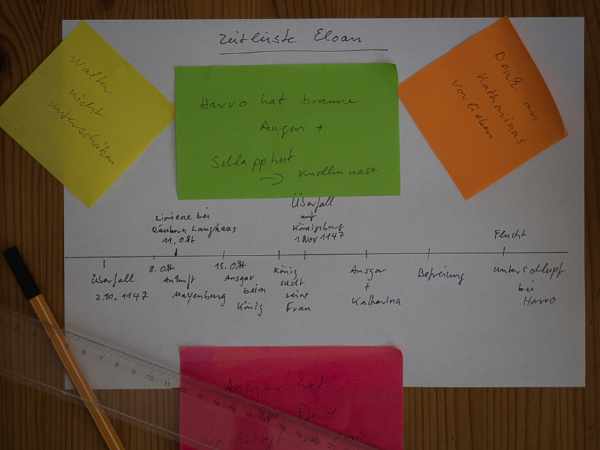 Zeitleiste Eloan
Walter
nicht
unterschätzen
Harro hat braune
Augen +
Schlapphut
→ Knollennase
Denk an
Katharinas
Vorlieben
bei
Räubern Langhaas
11. Okt
Überfall
auf
Königsburg
1 Nov 1147
Flucht
Überfall
2.10.1147
8. Okt
Ankunft
Mayenburg
15. Okt
Ansgar
beim
König
König
sucht
seine
Frau
Ansgar
+
Katharina
Befreiung
Unterschlupf
bei
Harro
Ansgar hat
Pferd
5 6 7 8 9 10 11 12 13 14 15 16 17 18 19 20